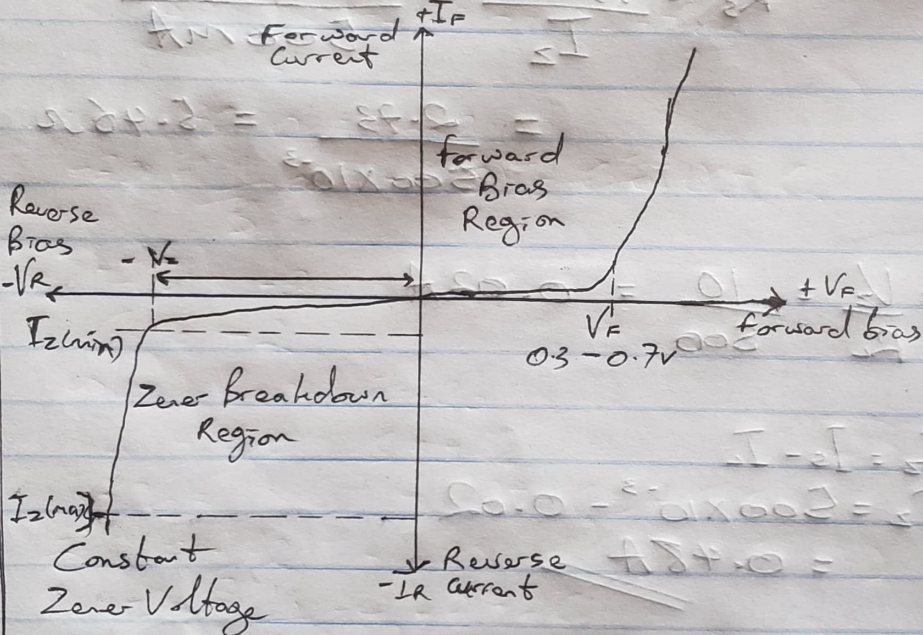 +IF
Forward
Current
forward
Bias
Region
Reverse
Bias
-VR
- Vz
+ VF
forward bias
VF
0.3 - 0.7v
Iz(min)
Zener Breakdown
Region
Iz(max)
Constant
Zener Voltage
Reverse
Current
-IR